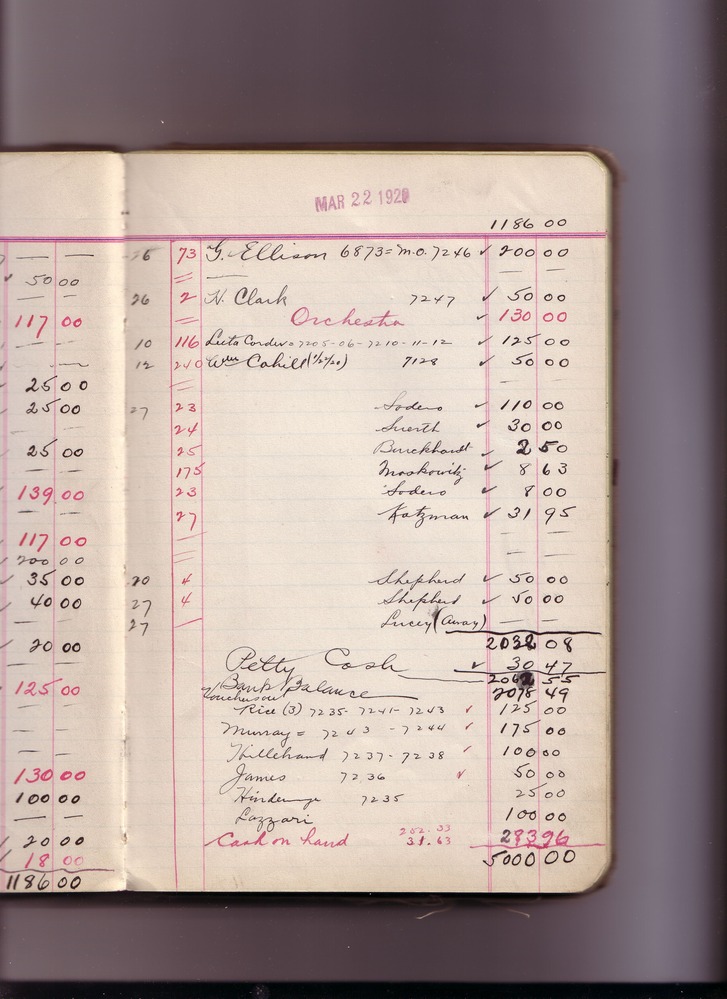 50 00
117 00
25 00
25 00
25 00
139 00
117 00
200 00
35 00
40 00
20 00
125 00
130 00
100 00
20 00
18 00
1186 00
MAR 22 1920
1186 00
26 73 G. Ellison 6873 = M.O. 7246 ✓ 200 00
26 2 H. Clark 7247 ✓ 50 00
Orchestra ✓ 130 00
10 116 Leeta Corder 7205-06-7210-11-12 ✓ 125 00
12 240 Wm Cahill (1/22/20) 7128 ✓ 50 00
27 23 Sodero ✓ 110 00
24 Suerth ✓ 30 00
25 Burckhardt ✓ 2 50
175 Moskowitz ✓ 8 63
23 Sodero ✓ 8 00
27 Katzman ✓ 31 95
20 4 Shepherd ✓ 50 00
27 4 Shepherd ✓ 50 00
27 Lucey (Away)
2032 08
Petty Cash ✓ 30 47
2062 55
Bank Balance 2078 49
Vouchers
Rice (3) 7235 - 7241 - 7243 ✓ 125 00
Murray = 7243 - 7244 ✓ 175 00
Hillebrand 7237 - 7238 ✓ 100 00
James 7236 ✓ 50 00
7235 25 00
Lazzari 100 00
Cash on hand 252.33 283 96
31.63
5000 00